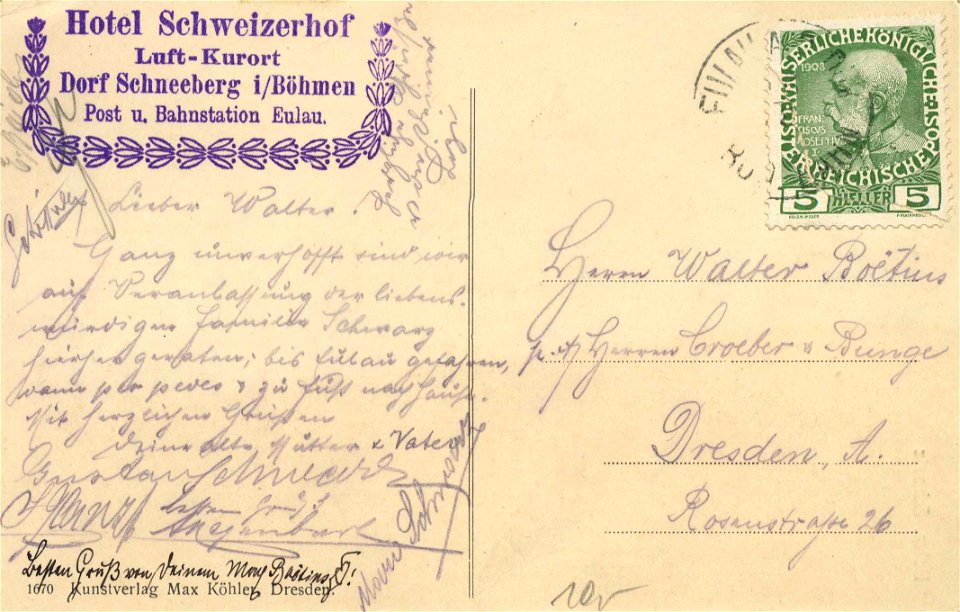 Hotel Schweizerhof
Luft-Kurort
Dorf Schneeberg i/Böhmen
Post u. Bahnstation Eulau.
Herzliche Grüße
von Deiner
Lieber Walter.
Ganz unverhofft sind wir
auf Veranlassung der liebens-
würdigen Familie Schwarz
hierher geraten, bis Eulau gefahren,
dann per pedes & zu Fuß nach Hause.
Mit herzlichen Grüßen
Deine alte Mutter & Vater
Gustav
besten Gruß
Besten Gruß von Deinem
1670 Kunstverlag Max Köhler, Dresden.
KAISERLICHE KÖNIGLICHE
ÖSTERREICHISCHE POST
1908
FRAN
CISCVS
IOSEPHVS
I
5 HELLER 5
EULAU
Herrn Walter Boëtius
p. Herren Croeber & Bunge
Dresden, A.
Rosenstraße 26